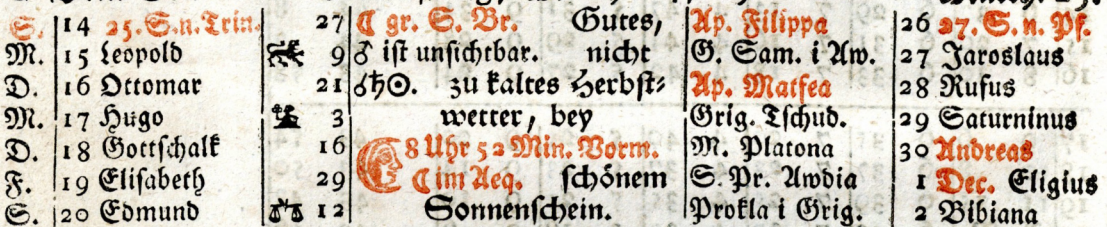 S. 14 25. S.n.Trin. 27 ☾ gr. S. Br. Gutes, Ap. Filippa 26 27. S. n. Pf.
M. 15 Leopold ♌ 9 ♂ iſt unſichtbar. nicht G. Sam. i Aw. 27 Jaroslaus
D. 16 Ottomar 21 ☌♄☉. zu kaltes Herbſt⸗ Ap. Matfea 28 Rufus
M. 17 Hugo ♍ 3 wetter, bey Grig. Tſchud. 29 Saturninus
D. 18 Gottſchalk 16 ☾ 8 Uhr 52 Min. Vorm. M. Platona 30 Andreas
F. 19 Eliſabeth 29 ☾ im Aeq. ſchönem S. Pr. Awdia 1 Dec. Eligius
S. 20 Edmund ♎ 12 Sonnenſchein. Prokla i Grig. 2 Bibiana